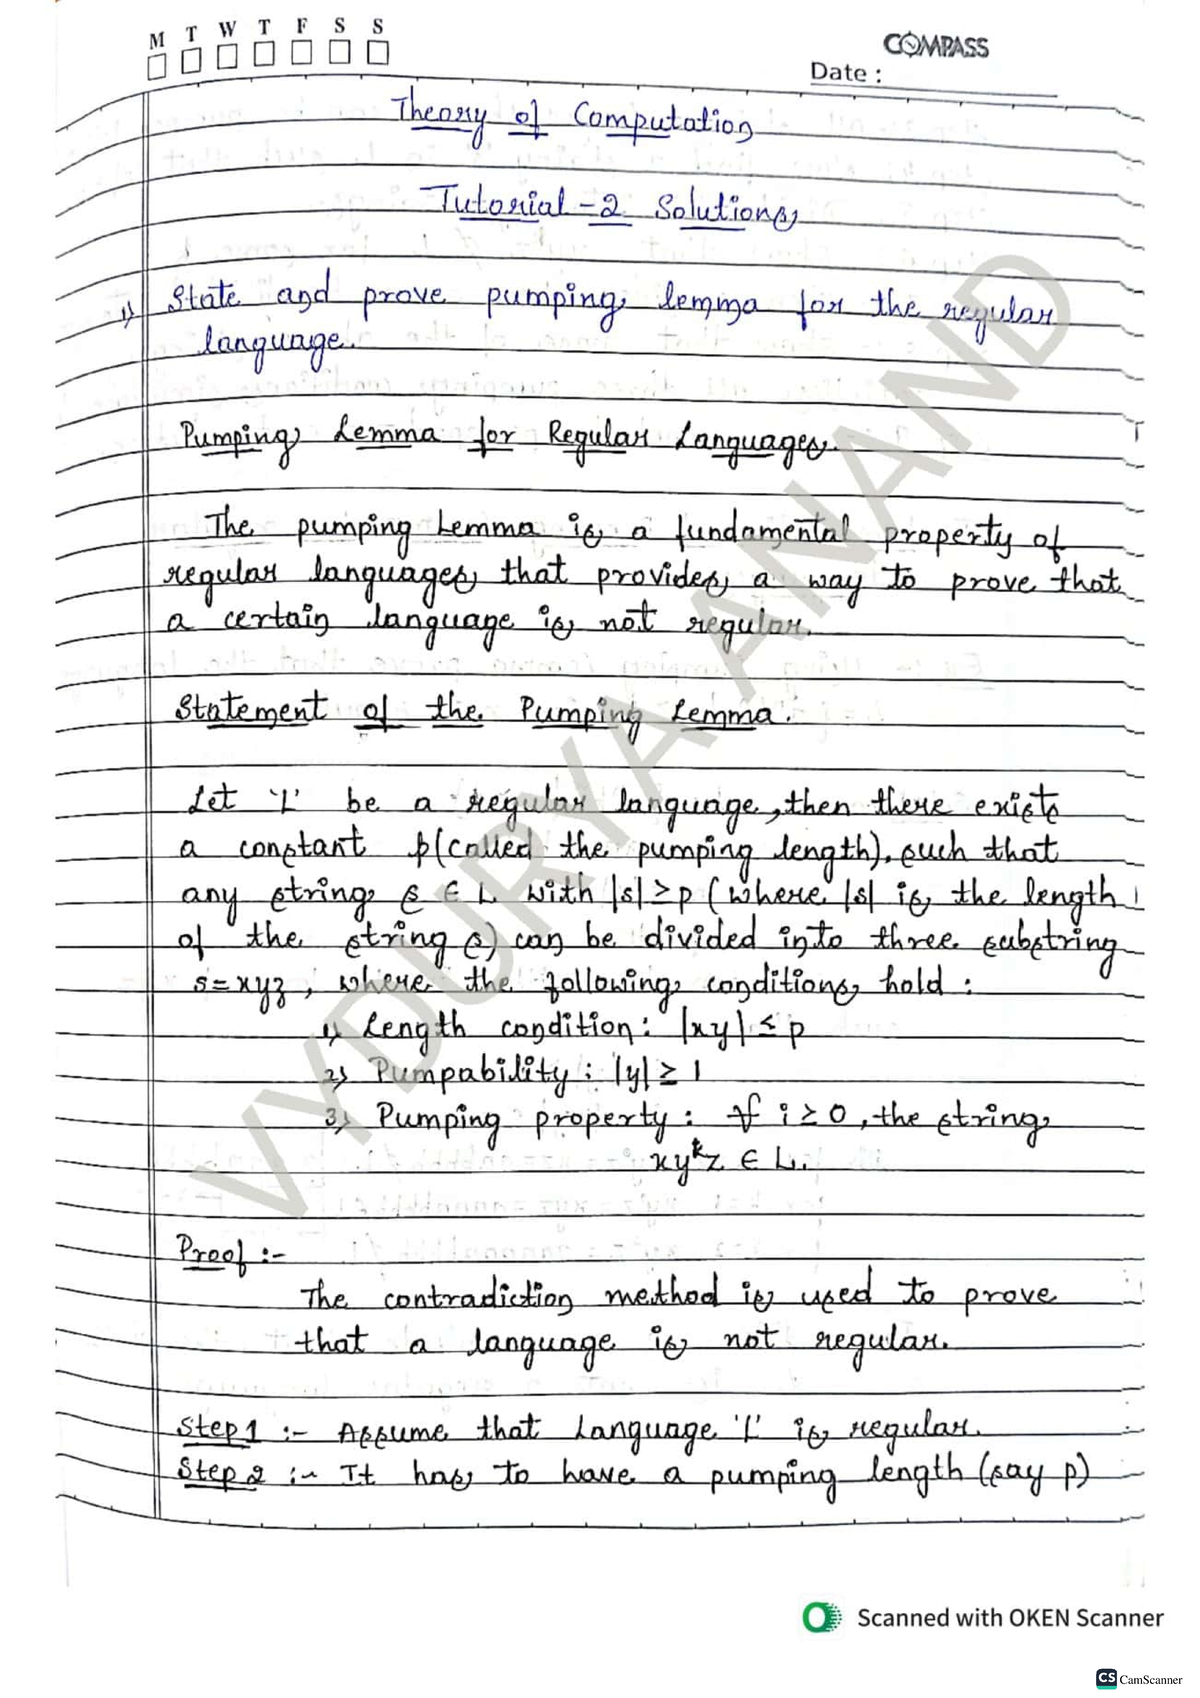 M T W T F S S
COMPASS
Date :
Theory of Computation
Tutorial-2 Solutions
1) State and prove pumping lemma for the regular
language.
Pumping Lemma for Regular Languages.
The pumping Lemma is a fundamental property of
regular languages that provides a way to prove that
a certain language is not regular.
Statement of the Pumping Lemma.
Let 'L' be a regular language, then there exists
a constant p(called the pumping length), such that
any string s ∈ L with |s| ≥ p (where |s| is the length
of the string s) can be divided into three substring
s = xyz, where the following conditions hold :
1) Length condition: |xy| ≤ p
2) Pumpability : |y| ≥ 1
3) Pumping property : ∀ i ≥ 0, the string
xy^k z ∈ L.
Proof :-
The contradiction method is used to prove
that a language is not regular.
Step 1 :- Assume that Language 'L' is regular.
Step 2 :- It has to have a pumping length (say p)
VYDURYA ANAND
Scanned with OKEN Scanner
CS CamScanner